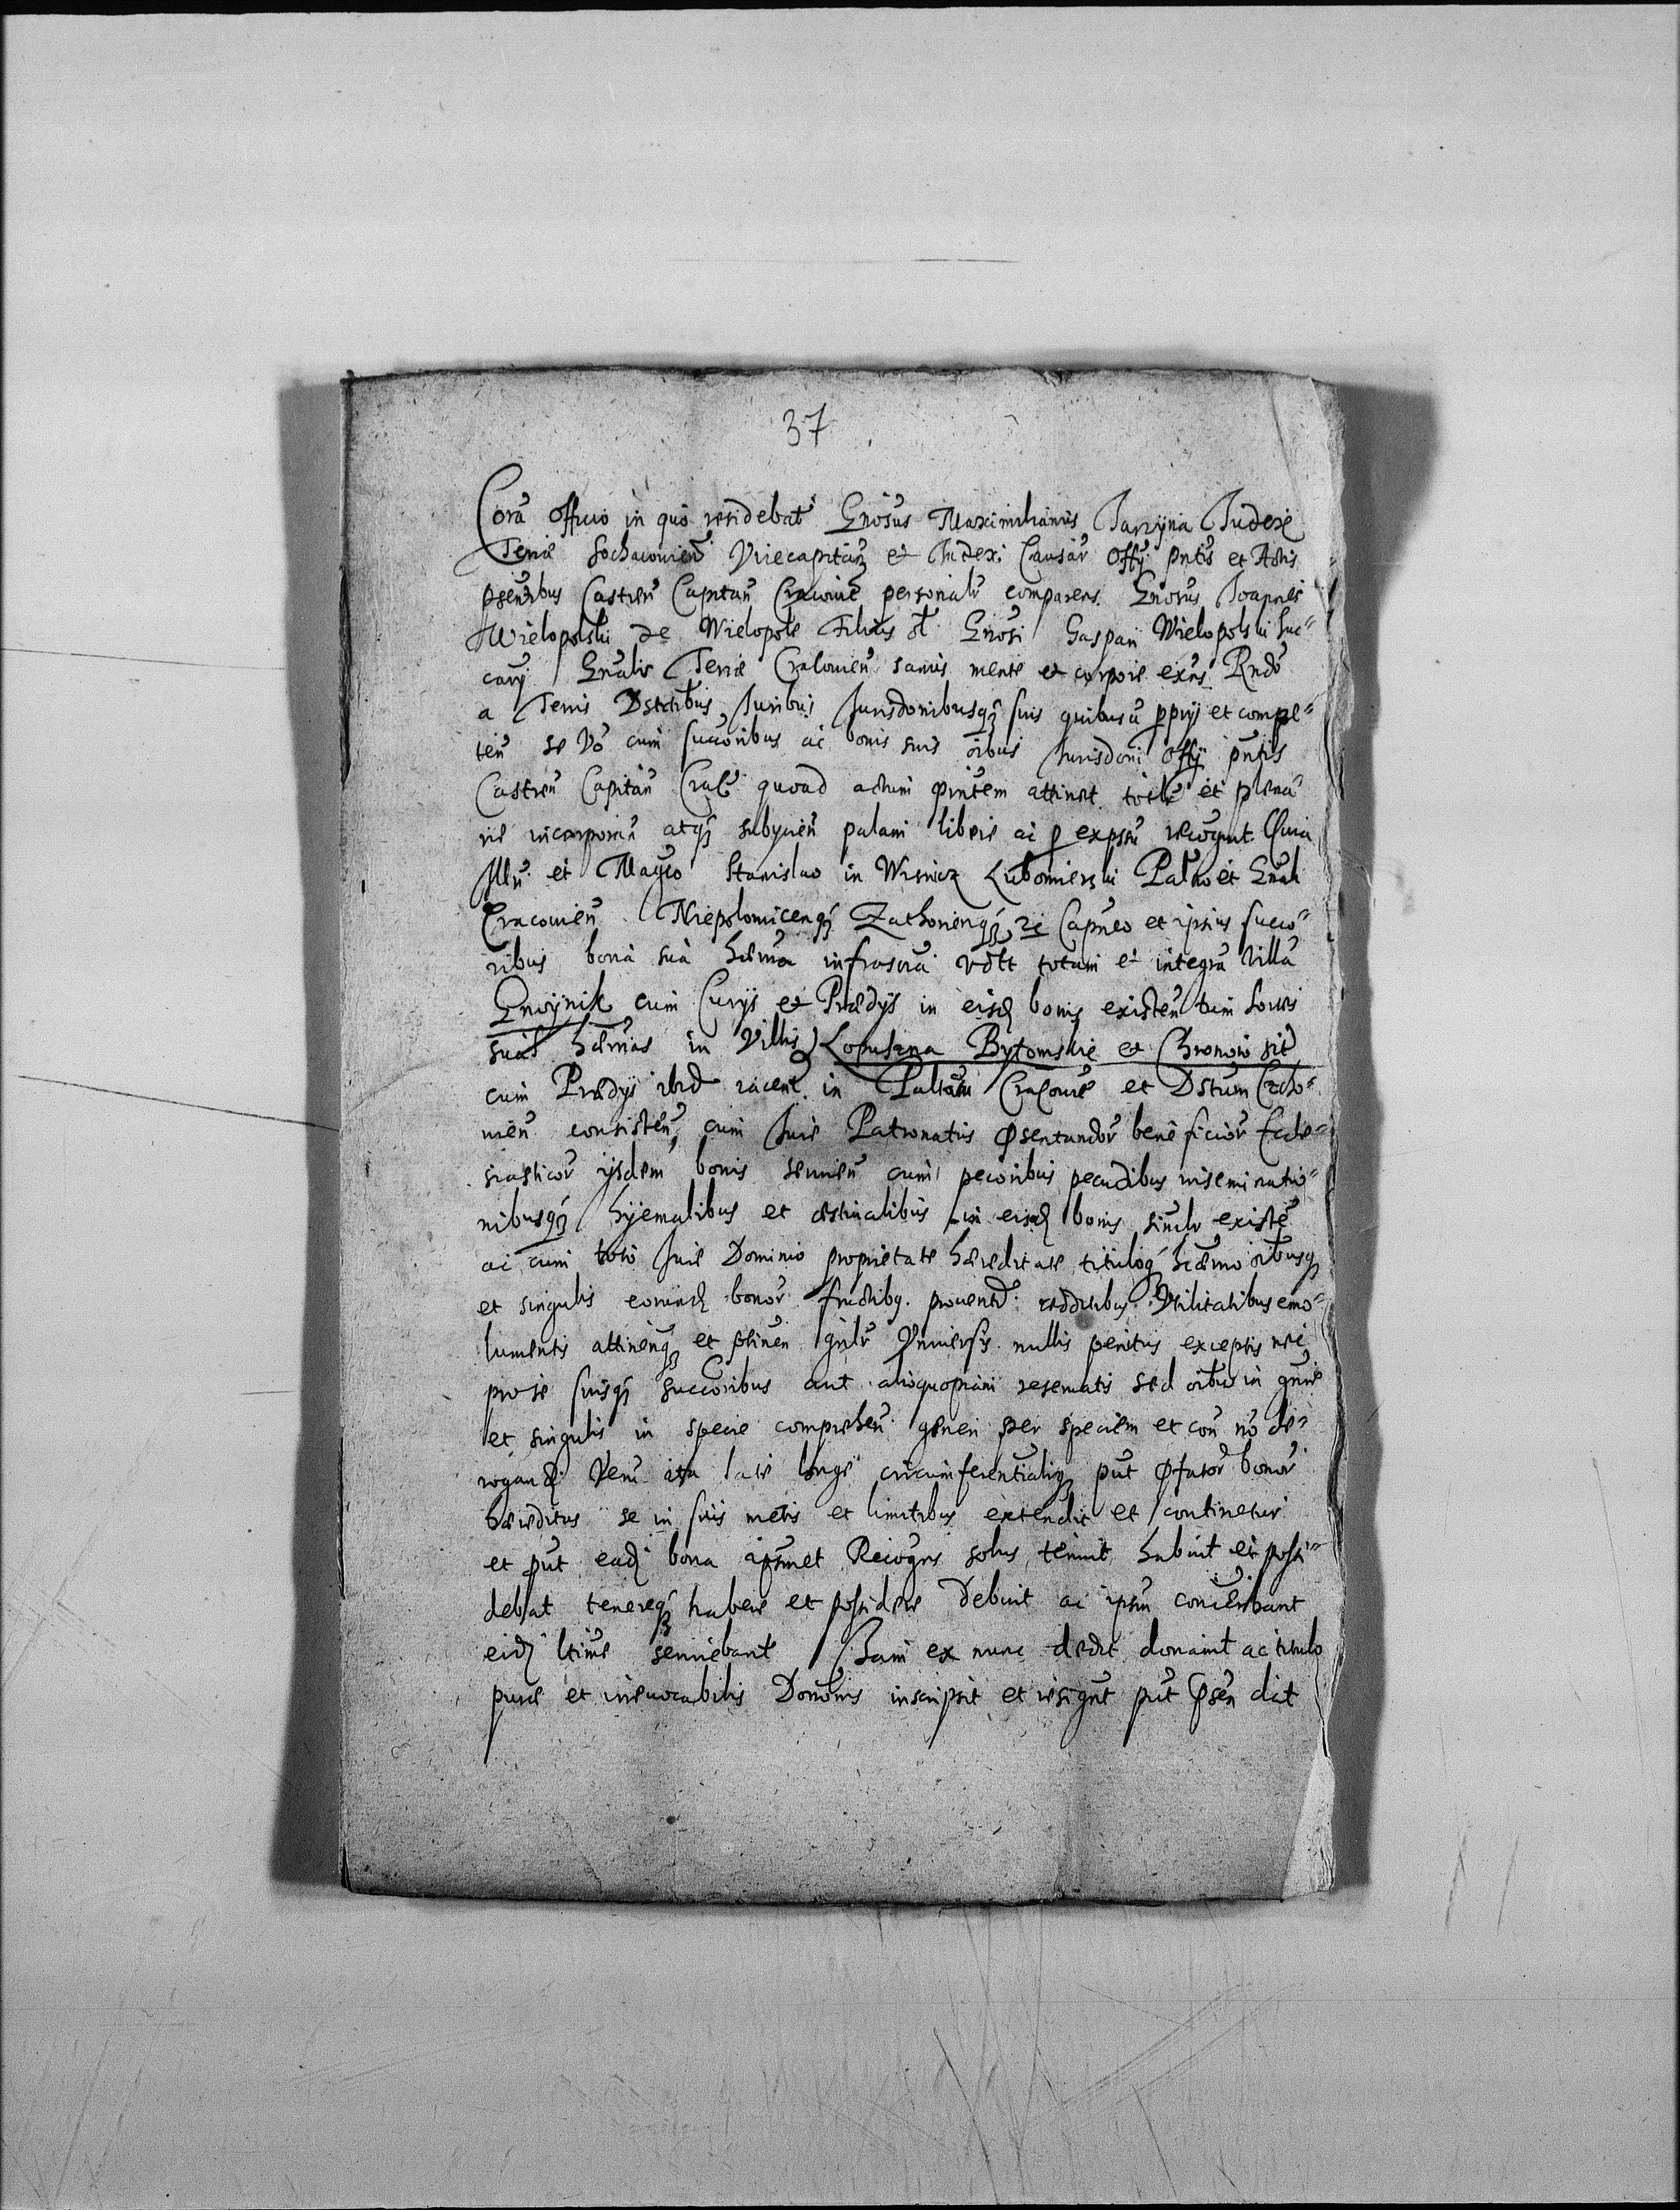 37
Corā Officio in quo residebat Gnosus Maximilianus Jarzyna Judex
Terrae Sochaczouien Vicecapitan et Judex Causar Offy pntis et Actis
psentibus Castren Capitan Cracouien personalr comparens Gnosus Joannes
Wielopolski de Wielopole Filius ol Gnosi Gaspari Wielopolski Suc-
cary Gnalis Terrae Cracouien sanus mente et corpore exns Rndo
a Terris Dstrctibus Juribus Jurisdonibusq suis quibusu ppriis et compe-
ten se vo cum succoribus ac bonis suis oibus Jurisdoni Offy pntis
Castren Capitan Crac quoad actum pntem attinet totlr et plena-
rie incorporan atq subycien palam libere ac p expssu recognt Quia
Illri et Magco Stanislao in Wisnicz Lubomierski Paltno et Gnali
Cracouien Niepolomicenq Zathorienq zc Capneo et ipsius succo-
ribus bona sua haerria infrascra vdlt totam et integra Villa
Gnoynik cum Curys et Praedys in eisd bonis existen tum Sortes
suas haerrias in Villis Lopuszna Bytomskie et Chronow sit
cum Praedys ibid iacent in Paltnatu Cracouie et Dstrum Czcho-
uien consisten cum Jure Patronatus psentandor beneficior Eccle-
siasticor ijsdem bonis seruien cum pecoribus pecudibus inseminatio-
nibusq hyemalibus et aestiualibus in eisd bonis simlr existē
ac cum toto Jure Dominio proprietate haereditate tituloq haerrio oibusq
et singulis eorund bonor fructibq prouentib redditibus Vtilitatibus emo-
lumentis attinenq et ptinen gnlr Vniuersis nullis penitus exceptis nec
pro se suisq succoribus aut alioquopiam reseruatis sed oibus in gnre
et singulis in specie comprehen generi per speciem et con no de-
rogando Veru ita late longe circumferentialiq put pfator bonor
haereditas se in suis metis et limitibus extendit et continetur
et put ead bona ipsemet Recogns solus tenuit habuit et possi-
debat tenereq habere et possidere debuit ac ipsm concernant
eid ltime seruiebant Jam ex nunc dedit donauit ac titulo
purae et irreuocabilis Donaonis inscripsit et resignt put psen dat